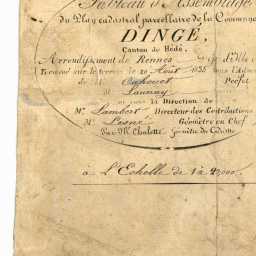 Tableau d'Assemblage
du Plan cadastral parcellaire de la Commune
D'INGÉ,
Canton de Hédé,
Arrondissement de Rennes
Terminé sur le terrain le 20 Août 1835 sous
Préfet
Launay
et sous la Direction de
Mr. Lambert Directeur des Contributions
Mr. Géomètre en Chef
Par Mr. Chalotte Géomètre de
à L'Echelle de 1 à 20,000.